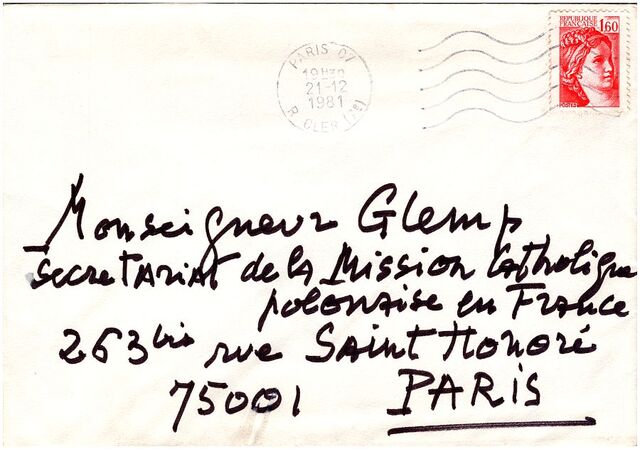 PARIS 07
19H30
21-12
1981
R. CLER (7e)
REPUBLIQUE
FRANÇAISE
1,60
POSTES
Monseigneur Glemp
Secretariat de la Mission Catholique
polonaise en France
263 bis rue Saint Honoré
75001 PARIS